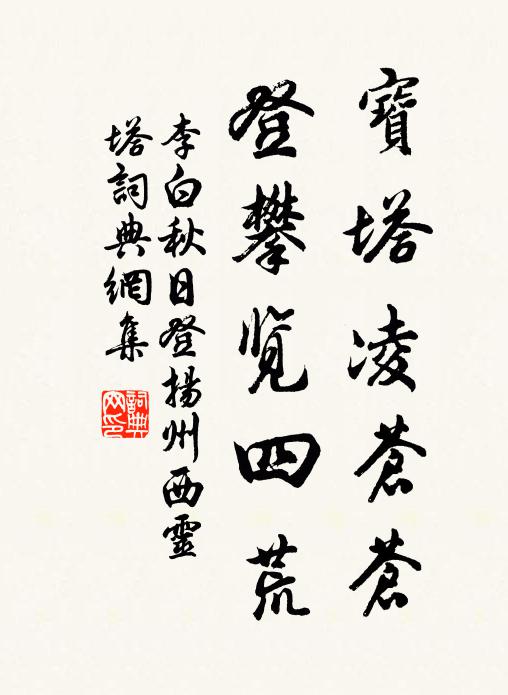 寶塔凌蒼蒼
登攀覽四荒
李白秋日登揚州西靈
塔詞典網集
詞典网印